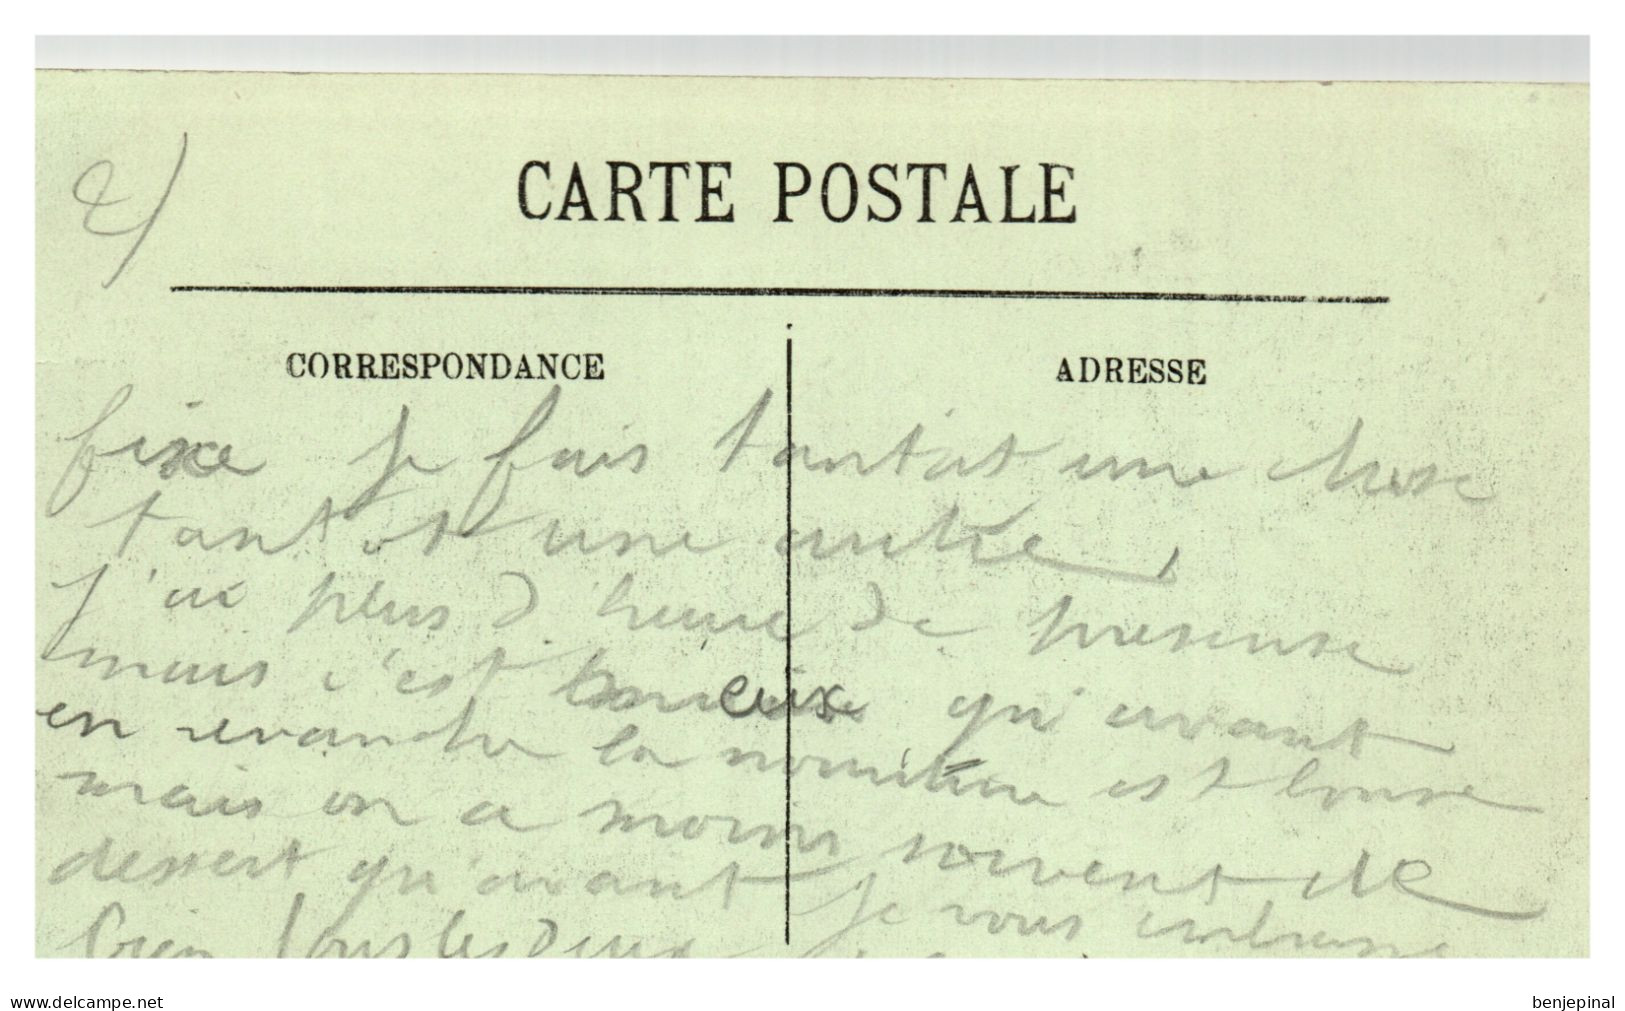 2)
CARTE POSTALE
CORRESPONDANCE
ADRESSE
fixe je fais tantot une chose
tantot une autre,
j'ai plus d'heure de presense
mais c'est qu'avant
en revanche la nourriture est bonne
mais on a moins souvent de
dessert qu'avant je vous embrasse
bien tous les deux
www.delcampe.net
benjepinal